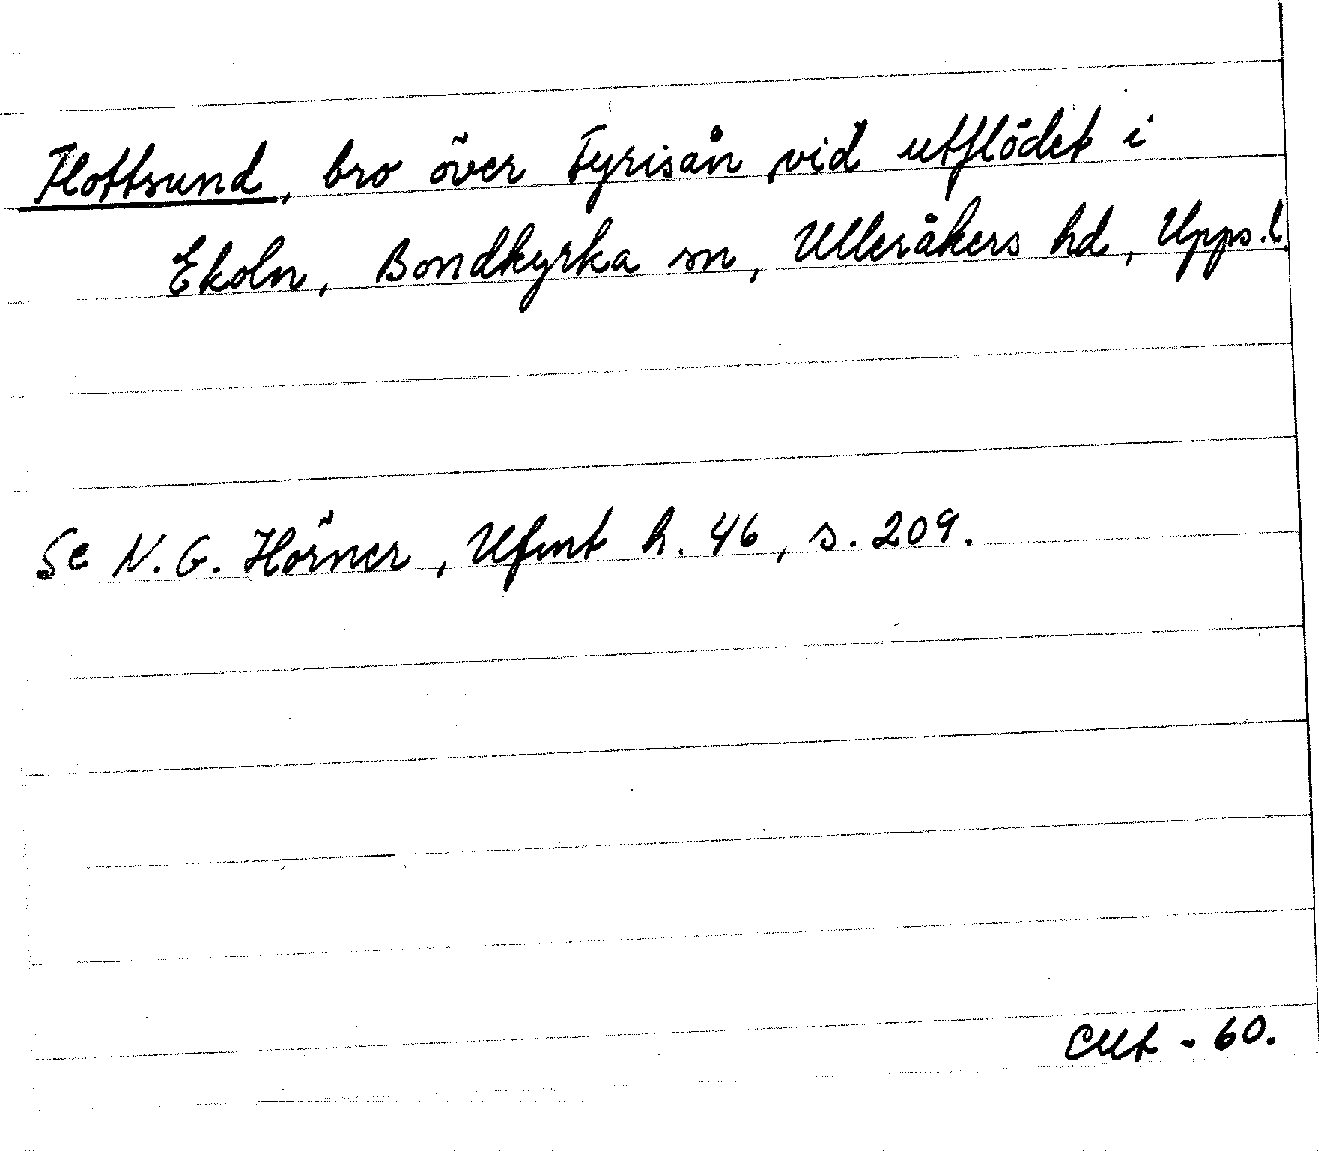 Flottsund, bro över Fyrisån vid utflödet i
Ekoln, Bondkyrka sn, Ulleråkers hd, Upps. l.
Se N. G. Hörner, Ufmt h. 46, s. 209.
- 60.